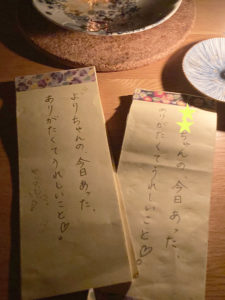 よりちゃんの、今日あった、
ありがたくてうれしいこと♡。
ちゃんの今日あった、
りがたくてうれしいこと♡。